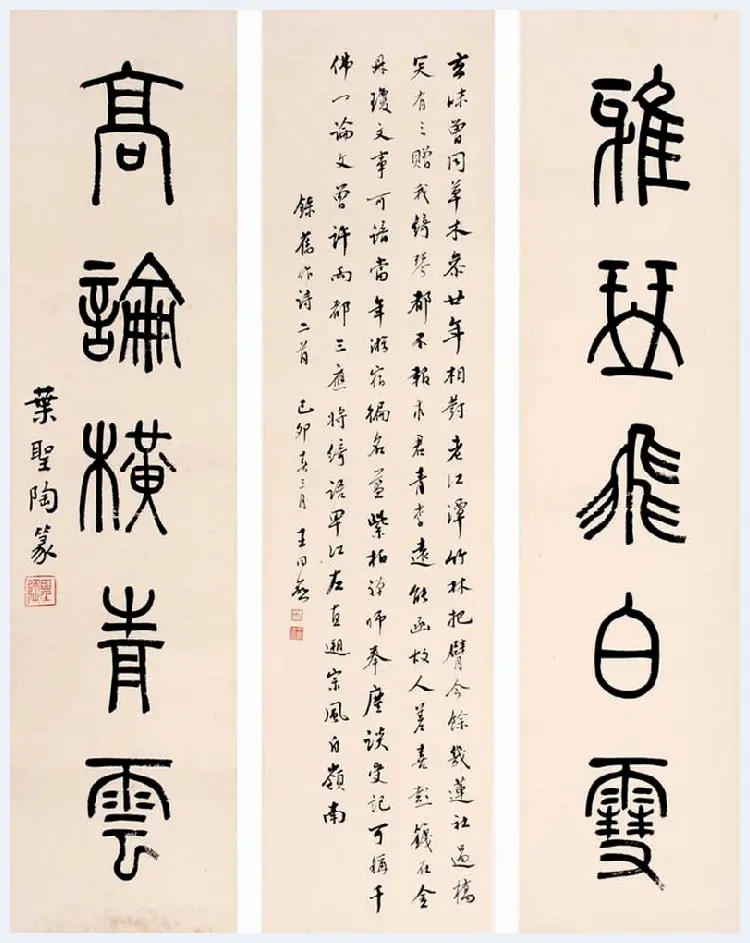 雅琴飛白雪
玄味曾同草木參廿年相對老江潭竹林把臂今餘幾蓮社過橋
笑有三贈我綺琴都不報求君青李遠能函故人善喜彭籛在
文事可語當年游宿徧名藍紫柏禪師奉塵談受記可稱千
佛一論文曾許兩都三應將綺語畢江左直遡宗風自嶺南
錄舊作詩二首 己卯春三月 王同愈
高論橫青雲
葉聖陶篆